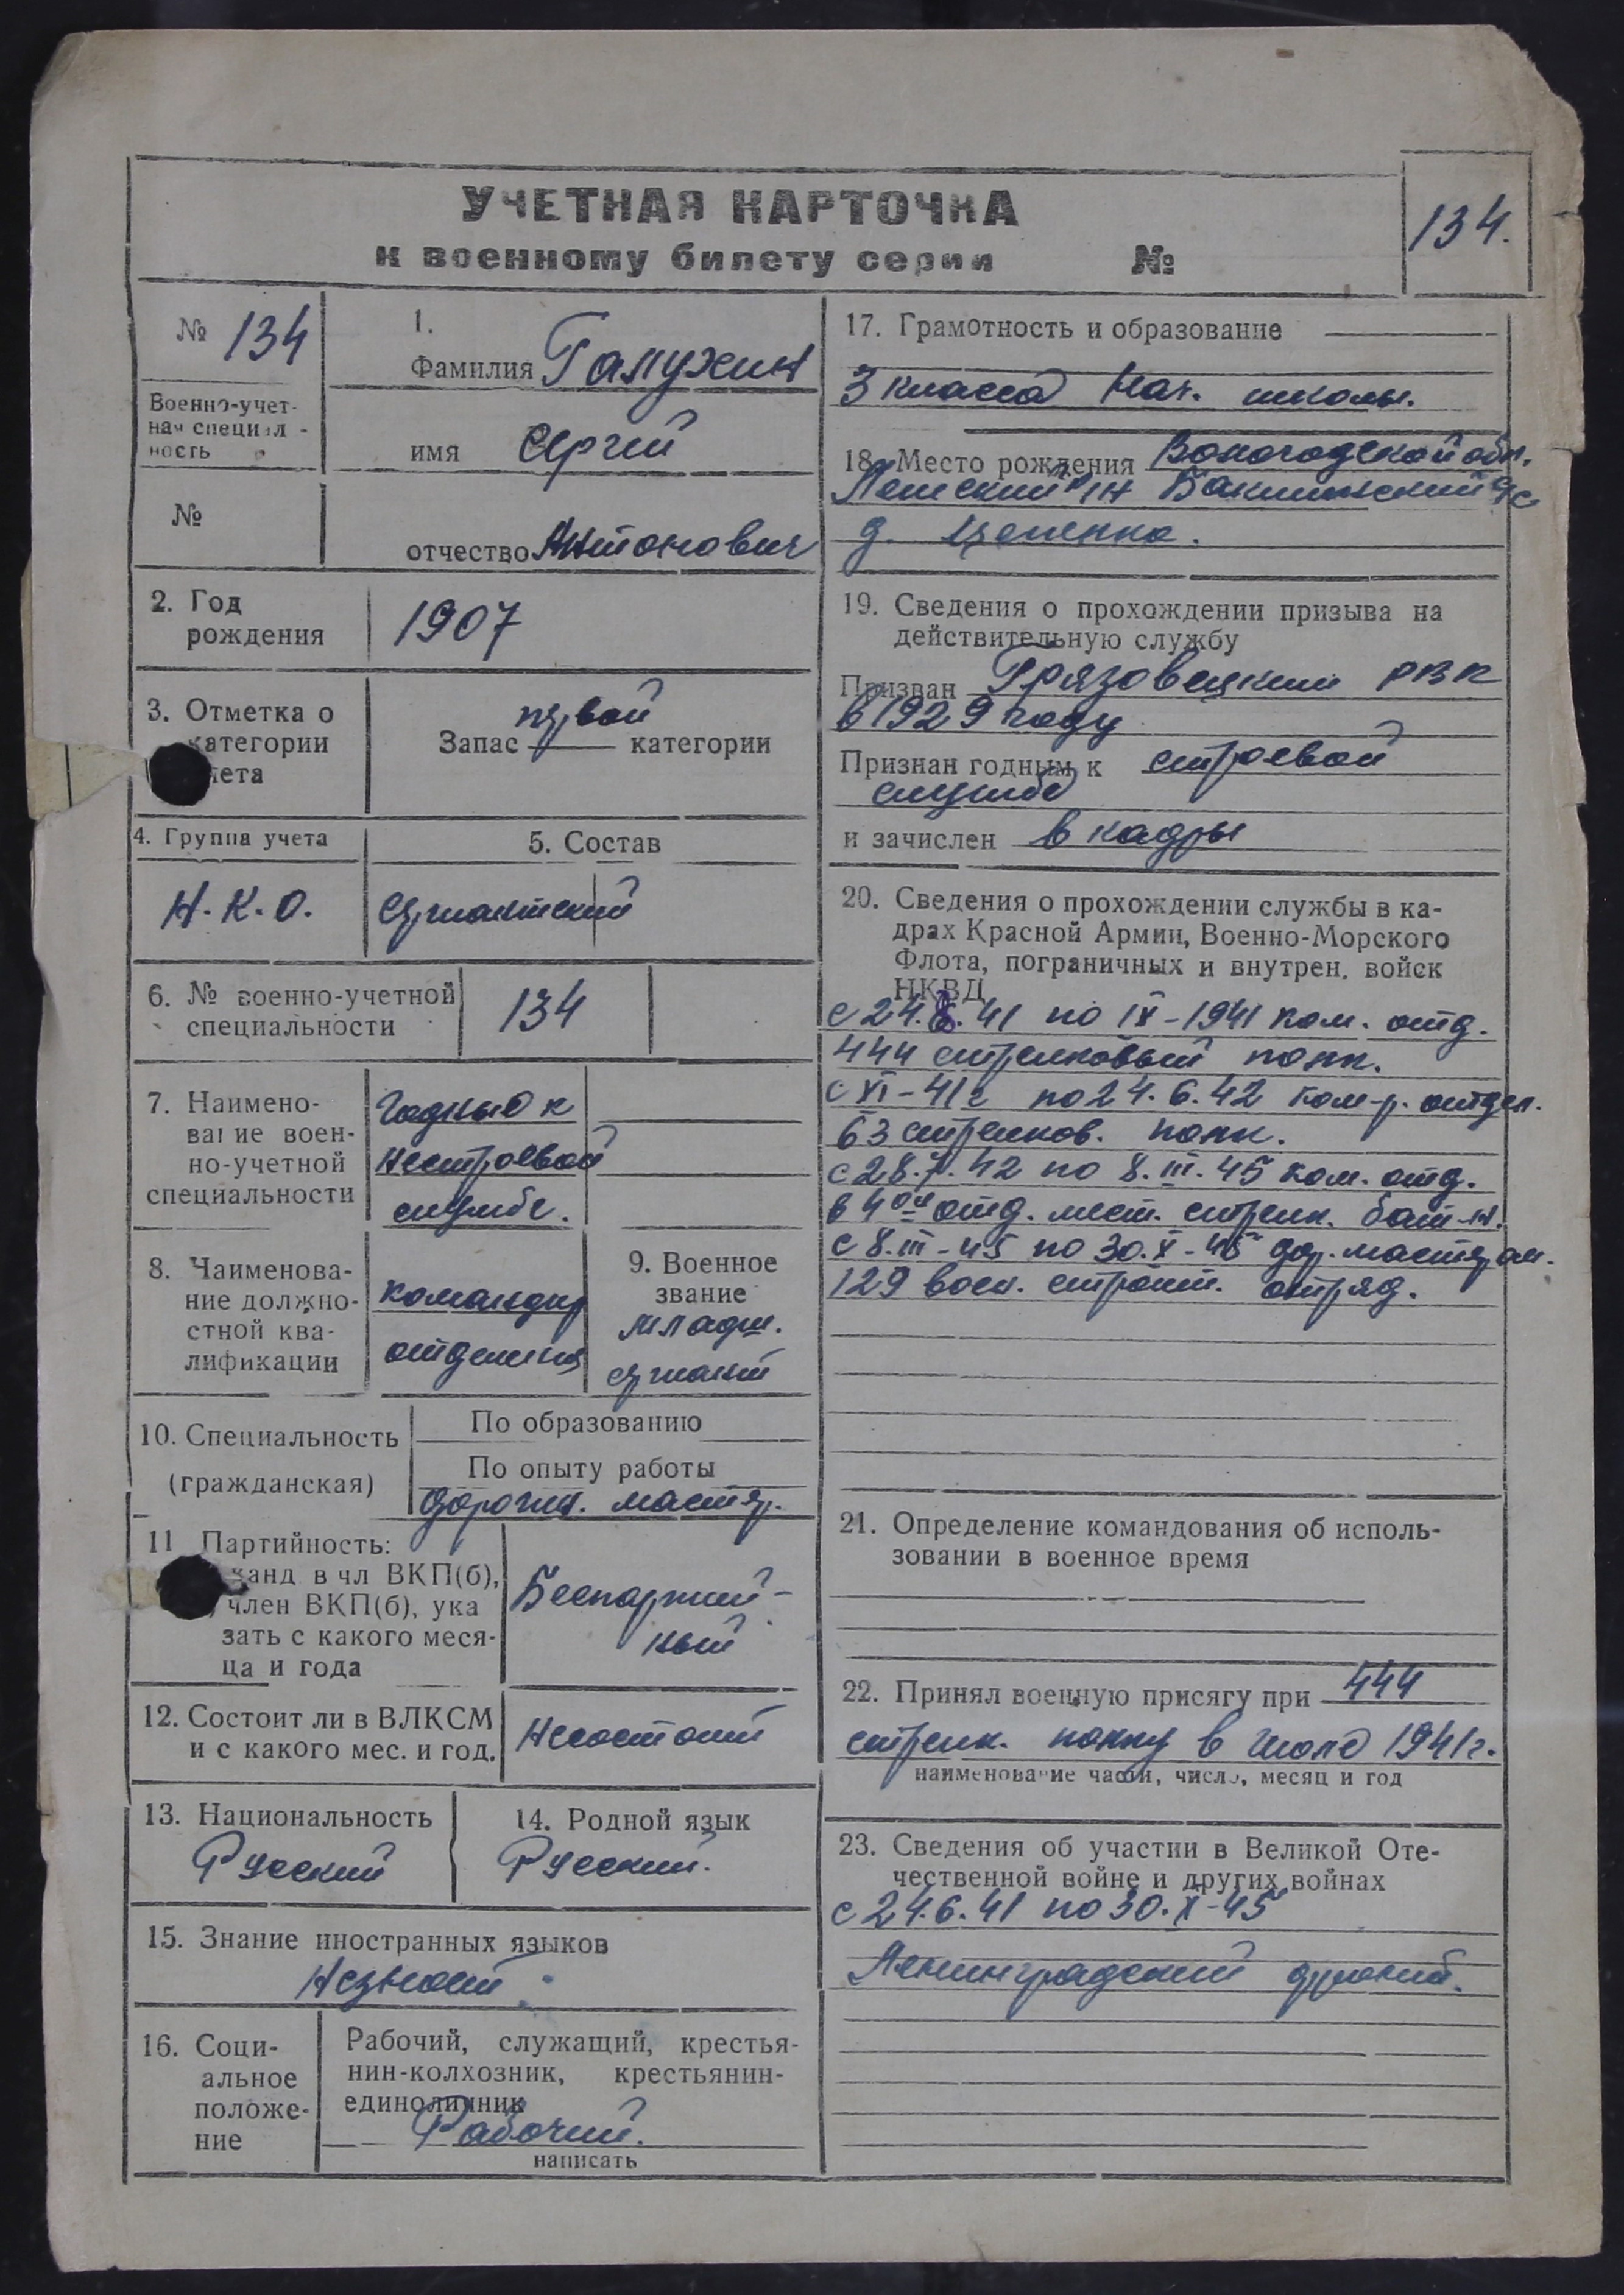 УЧЕТНАЯ КАРТОЧКА
к военному билету серии №
134.
№ 134
Военно-учет-
ная специал-
ность
№
1.
Фамилия Галухин
имя Сергей
отчество Антонович
2. Год
рождения
1907
3. Отметка о
категории
чета
первой
Запас категории
4. Группа учета
Н.К.О.
5. Состав
сержантский
6. № военно-учетной
специальности
134
7. Наимено-
вание воен-
но-учетной
специальности
Годный к
нестроевой
службе.
8. Наименова-
ние должно-
стной ква-
лификации
командир
отделения
9. Военное
звание
младш.
сержант
10. Специальность
(гражданская)
По образованию
По опыту работы
дорожн. мастер.
11 Партийность:
канд в чл ВКП(б),
член ВКП(б), ука
зать с какого меся-
ца и года
Беспартий-
ный
12. Состоит ли в ВЛКСМ
и с какого мес. и год.
Несостоит
13. Национальность
Русский
14. Родной язык
Русский.
15. Знание иностранных языков
Незнает.
16. Соци-
альное
положе-
ние
Рабочий, служащий, крестья-
нин-колхозник, крестьянин-
единоличник
Рабочий.
написать
17. Грамотность и образование
3 класса Нач. школы.
18. Место рождения Вологодской обл.
Лежский р-н с/с
д.
19. Сведения о прохождении призыва на
действительную службу
Призван Грязовецким РВК
в 1929 году
Признан годным к строевой
службе
и зачислен в кадры
20. Сведения о прохождении службы в ка-
драх Красной Армии, Военно-Морского
Флота, пограничных и внутрен. войск
НКВД
с 24.6.41 по IX-1941 ком. отд.
444 стрелковый полк.
с XI-41г по 24.6.42 ком-р. отдел.
63 стрелков. полк.
с 28.7.42 по 8.III.45 ком. отд.
в 4ом отд. мест. стрелк. бат-н.
с 8.III-45 по 30.X-45 дор. мастером.
129 воен. строит. отряд.
21. Определение командования об исполь-
зовании в военное время
22. Принял военную присягу при 444
стрелк. полку в Июле 1941г.
наименование части, число, месяц и год
23. Сведения об участии в Великой Оте-
чественной войне и других войнах
с 24.6.41 по 30.X-45
Ленинградский фронт.